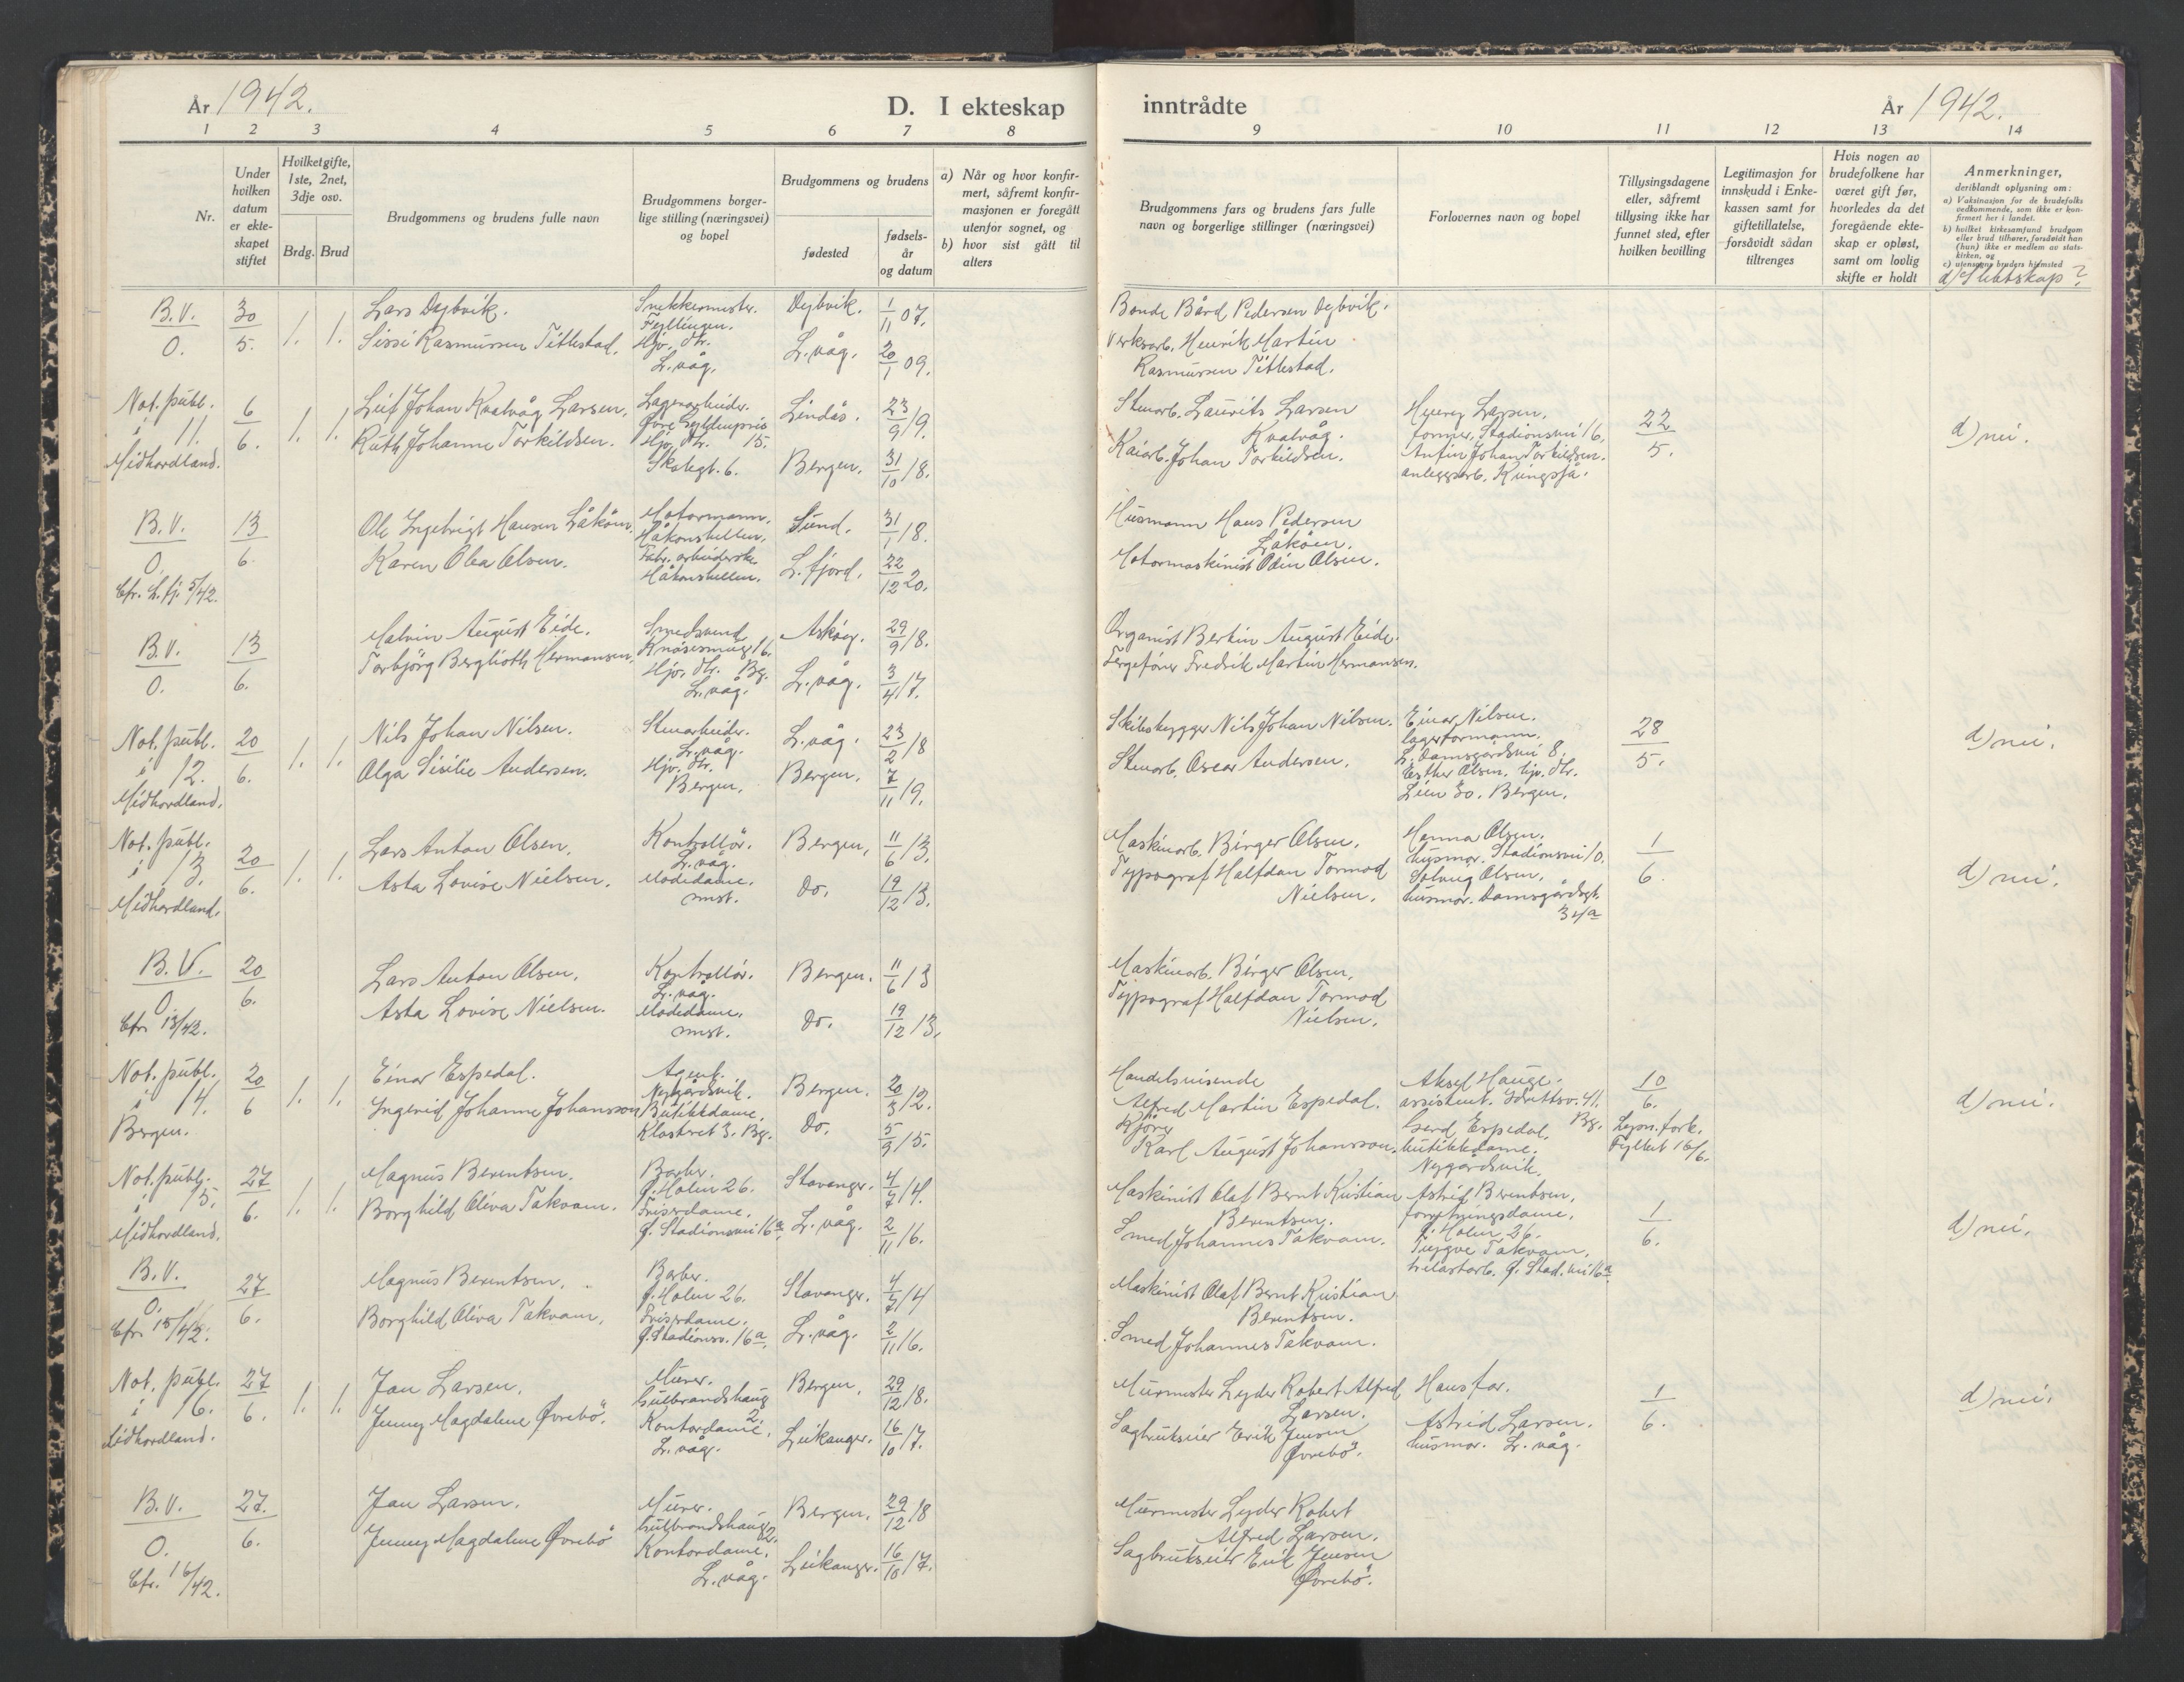 År 1942.
D. I ekteskap
inntrådte
År 1942.
1 2 3 4 5 6 7 8 9 10 11 12 13 14
Nr.
Under
hvilken
datum
er ekte-
skapet
stiftet
Hvilket gifte,
1ste, 2net,
3dje osv.
Brdg. Brud
Brudgommens og brudens fulle navn
Brudgommens borger-
lige stilling (næringsvei)
og bopel
Brudgommens og brudens
fødested
fødsels-
år
og datum
a) Når og hvor konfir-
mert, såfremt konfir-
masjonen er foregått
utenfor sognet, og
b) hvor sist gått til
alters
Brudgommens fars og brudens fars fulle
navn og borgerlige stillinger (næringsvei)
Forlovernes navn og bopel
Tillysingsdagene
eller, såfremt
tillysing ikke har
funnet sted, efter
hvilken bevilling
Legitimasjon for
innskudd i Enke-
kassen samt for
giftetillatelse,
forsåvidt sådan
tiltrenges
Hvis nogen av
brudefolkene har
været gift før,
hvorledes da det
foregående ekte-
skap er opløst,
samt om lovlig
skifte er holdt
Anmerkninger,
deriblandt oplysning om:
a) Vaksinasjon for de brudefolks
vedkommende, som ikke er kon-
firmert her i landet.
b) hvilket kirkesamfund brudgom
eller brud tilhører, forsåvidt han
(hun) ikke er medlem av stats-
kirken, og
c) utensogns bruders hjemsted
d) Slektskap?
B.V.
0.
30
5.
1. 1.
Lars Dybvik.
Sissi Rasmussen Tittestad.
Snekkermester.
Fyllingen.
Hjv. dtr.
L.våg.
Dybvik.
L.våg.
1/11 07.
20/1 09.
Bonde Bård Pedersen Dybvik.
Verksarb. Henrik Martin
Rasmussen Tittestad.
Not. publ.
i 11.
Midhordland.
6
6.
1. 1.
Leif Johan Kvalvåg Larsen.
Ruth Johanne Torkildsen.
Lagerarbeider.
15.
Hjv. dtr.
Skolegt. 6.
Lindås.
Bergen.
23/9 19.
31/10 18.
Stenarb. Laurits Larsen
Kvalvåg.
Kaiarb. Johan Torkildsen.
Larsen,
former, Stadionsvei 16,
Johan Torkildsen.
anleggsarb.
22
5.
d) nei.
B.V.
0.
Cfr. L.fj. 5/42.
13
6.
Ole Ingebrigt Hansen Låkøen.
Karen Olea Olsen.
Motormann.
Håkonshellen.
Fabr. arbeiderske
Håkonshellen.
Sund.
L.fjord.
31/1 18.
22/12 20.
Husmann Hans Pedersen
Låkøen.
Motormaskinist Odin Olsen.
B.V.
0.
13
6.
Malvin August Eide.
Torbjörg Berglioth Hermansen.
Smedsvend
Knøsesmug 16.
Hjv. dtr. Bg.
L.våg.
Askøy.
L.våg.
29/9 18.
3/4 17.
Organist Bertin August Eide.
Fergefører Fredrik Martin Hermansen.
Not. publ.
i 12.
Midhordland.
20
6.
1. 1.
Nils Johan Nilsen.
Olga Sisilie Andersen.
Stenarbeider.
L.våg.
Hjv. dtr.
Bergen.
L.våg.
Bergen.
23/2 18
7/11 19.
Skibsbygger Nils Johan Nilsen.
Stenarb. Oscar Andersen.
Einar Nilsen.
lagerformann.
L. Damsgårdsvei 8.
Esther Olsen. hjv. dtr.
Lien 30. Bergen.
28
5.
d) nei.
Not. publ.
i 13.
Midhordland.
20
6.
1. 1.
Lars Anton Olsen.
Asta Lovise Nielsen.
Kontrollör.
L.våg.
Modedame.
smst.
Bergen,
Do.
11/6 13.
19/12 13.
Maskinarb. Birger Olsen.
Typograf Halfdan Tormod
Nielsen.
Hanna Olsen.
husmor. Stadionsvei 10.
Solveig Olsen.
husmor. Damsgårdsgt.
34a
1
6.
d) nei.
B.V.
0
Cfr. 13/42.
20
6.
Lars Anton Olsen.
Asta Lovise Nielsen.
Kontrollör.
L.våg.
Modedame.
smst.
Bergen.
Do.
11/6 13
19/12 13.
Maskinarb. Birger Olsen.
Typograf Halfdan Tormod
Nielsen.
Not. publ.
i 14.
Bergen.
20
6
1. 1.
Einar Espedal.
Ingerid Johanne Johansson
Agent.
Nygårdsvik.
Butikkdame.
Klosteret 3. Bg.
Bergen.
Do.
20/3 12.
5/9 15.
Handelsreisende
Alfred Martin Espedal.
Kjører
Karl August Johansson.
Aksel Hauge.
assistent. Idrettsv. 41.
Gerd Espedal, Bg.
butikkdame.
Nygårdsvik.
10
6.
Lysn. fork.
Fylket 16/6.
d) nei.
Not. publ.
i 15.
Midhordland.
27
6.
1. 1.
Magnus Berentsen.
Borghild Oliva Takvam.
Barber.
Ø. Holen 26.
Frisørdame.
Ø. Stadionsvei 16a.
Stavanger.
L.våg.
4/7 14.
2/11 16.
Maskinist Olaf Bernt Kristian
Berentsen.
Smed Johannes Takvam.
Astrid Berentsen,
forretningsdame,
Ø. Holen 26.
Trygve Takvam,
Ø. Stad. vei 16a
1
6.
d) nei.
B.V.
0.
Cfr. 15/42.
27
6.
Magnus Berentsen.
Borghild Oliva Takvam.
Barber.
Ø. Holen 26.
Frisørdame.
Ø. Stadionsv. 16a.
Stavanger.
L.våg.
4/7 14
2/11 16.
Maskinist Olaf Bernt Kristian
Berentsen.
Smed Johannes Takvam.
Not. publ.
i 16.
Midhordland.
27
6.
1. 1.
Jan Larsen.
Jenny Magdalene Øvrebö.
Murer.
Gulbrandshaug
2.
Kontordame.
L.våg.
Bergen.
Leikanger.
29/12 18.
16/10 17.
Murmester Lyder Robert Alfred
Larsen.
Sagbrukseier Erik Jensen
Øvrebö.
Hans far.
Astrid Larsen.
husmor. L.våg.
1
6.
d) nei.
B.V.
0.
Cfr. 16/42.
27.
6.
Jan Larsen.
Jenny Magdalene Øvrebö
Murer.
Gulbrandshaug
2.
Kontordame.
L.våg.
Bergen.
Leikanger.
29/12 18
16/10 17.
Murmester Lyder Robert
Alfred Larsen.
Sagbrukseier Erik Jensen
Øvrebö.